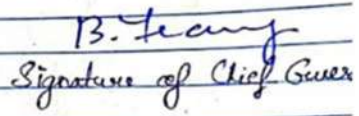 B.
Signature of Chief Gues